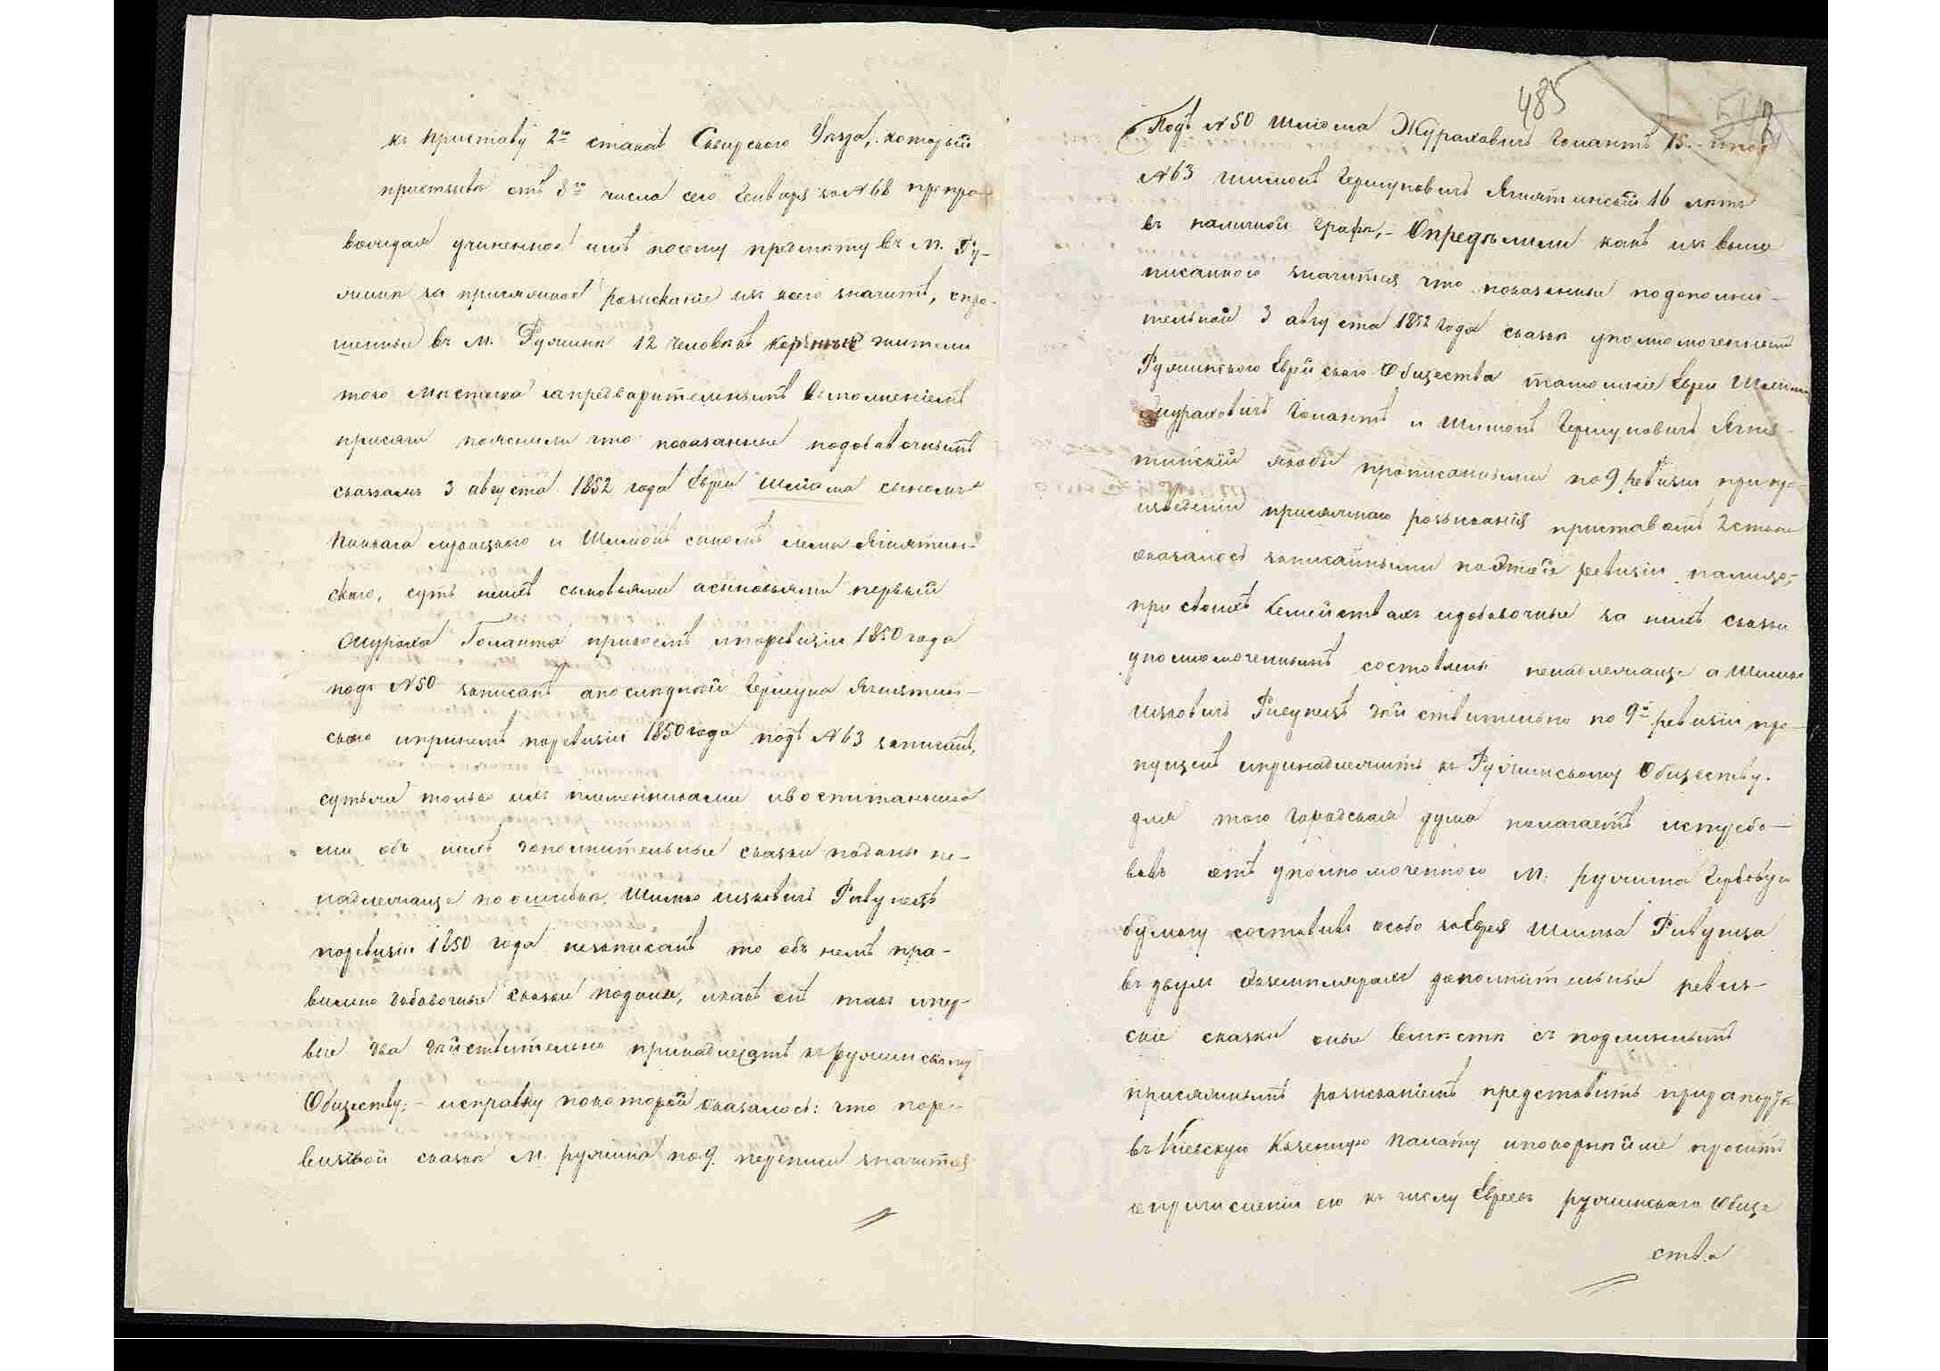 къ приставу 2го стана Сквирскаго Уѣзда, который
приставъ отъ 8го числа сего Генваря за №68 препро-
вождая учиненное имъ посему предмету въ М. Ру-
жинѣ за присяжное розысканіе изъ коего значитъ, спро-
шенные въ М. Ружинѣ 12 человѣкъ коренные жители
того мѣстечка запредварительнымъ выполненіемъ
присяги пояснили что показанные подобавочнымъ
сказкамъ 3 августа 1852 года Евреи Шлиома сыномъ
и Шимонъ сыномъ Ягнятин-
скаго, суть неихъ сыновьями асыновьями первый
Журахо Голанта при коемъ ипоревизіи 1850 года
подъ №50 записанъ апослѣдній Гершуна Ягнятин-
скаго ипринемъ поревизіи 1850 года подъ №63 записанъ,
сутьже только ихъ племенниками ивоспитанника
ми объ нихъ дополнительные сказки поданы не-
надлежаще поошибкѣ, Шимко Ицковичъ Ривунецъ
поревизіи 1850 года незаписанъ то объ немъ пра-
вильно добавочные сказки поданы, икакъ онъ такъ ипер-
вые два дѣйствительно принадлежатъ къ ружинскому
Обществу; – исправку покоторой оказалось: что поре-
визской сказкѣ М. ружина по 9 переписи значится
485
Подъ №50 Шлиома Журахович Голантъ 15. – ипод
№63 шимонъ Гершуновичъ Ягнятинскій 16 лѣтъ
въ наличной графѣ, – Опредѣлили какъ изъ выше
писаннаго значится что показанные подополни-
тельной 3 августа 1852 года сказкѣ уполномоченнымъ
Ружинскаго Еврейскаго Общества тамошніе Евреи Шлиома
Журахович Голантъ и Шимонъ Гершуновичъ Ягня-
тинскій якобы прописанными по 9 ревизіи припро-
изведеніи присяжнаго розысканія приставомъ 2 стана
оказалось записанными поэтой ревизіи налицо,
при своихъ Семействахъ идобавочные за нихъ сказки
уполномоченнымъ составлены ненадлежаще а Шимко
Ицковичъ Ривунецъ дѣйствительно по 9й ревизіи про-
пущенъ ипринадлежитъ къ Ружинскому Обществу.
для того Городская дума полагаетъ истребо-
вавъ отъ уполномоченнаго М. ружина Гербовую
бумагу составивъ особо заЕврея Шимка Ривунца
въ двухъ экземплярахъ дополнительные ревиз-
скіе сказки оныя вмѣстѣ съ подлиннымъ
присяжнымъ розысканіемъ представить при рапортѣ
въ Кіевскую Казенную Палату ипокорнѣйше просить
опричисленіи его къ числу Евреевъ ружинскаго Обще
ства